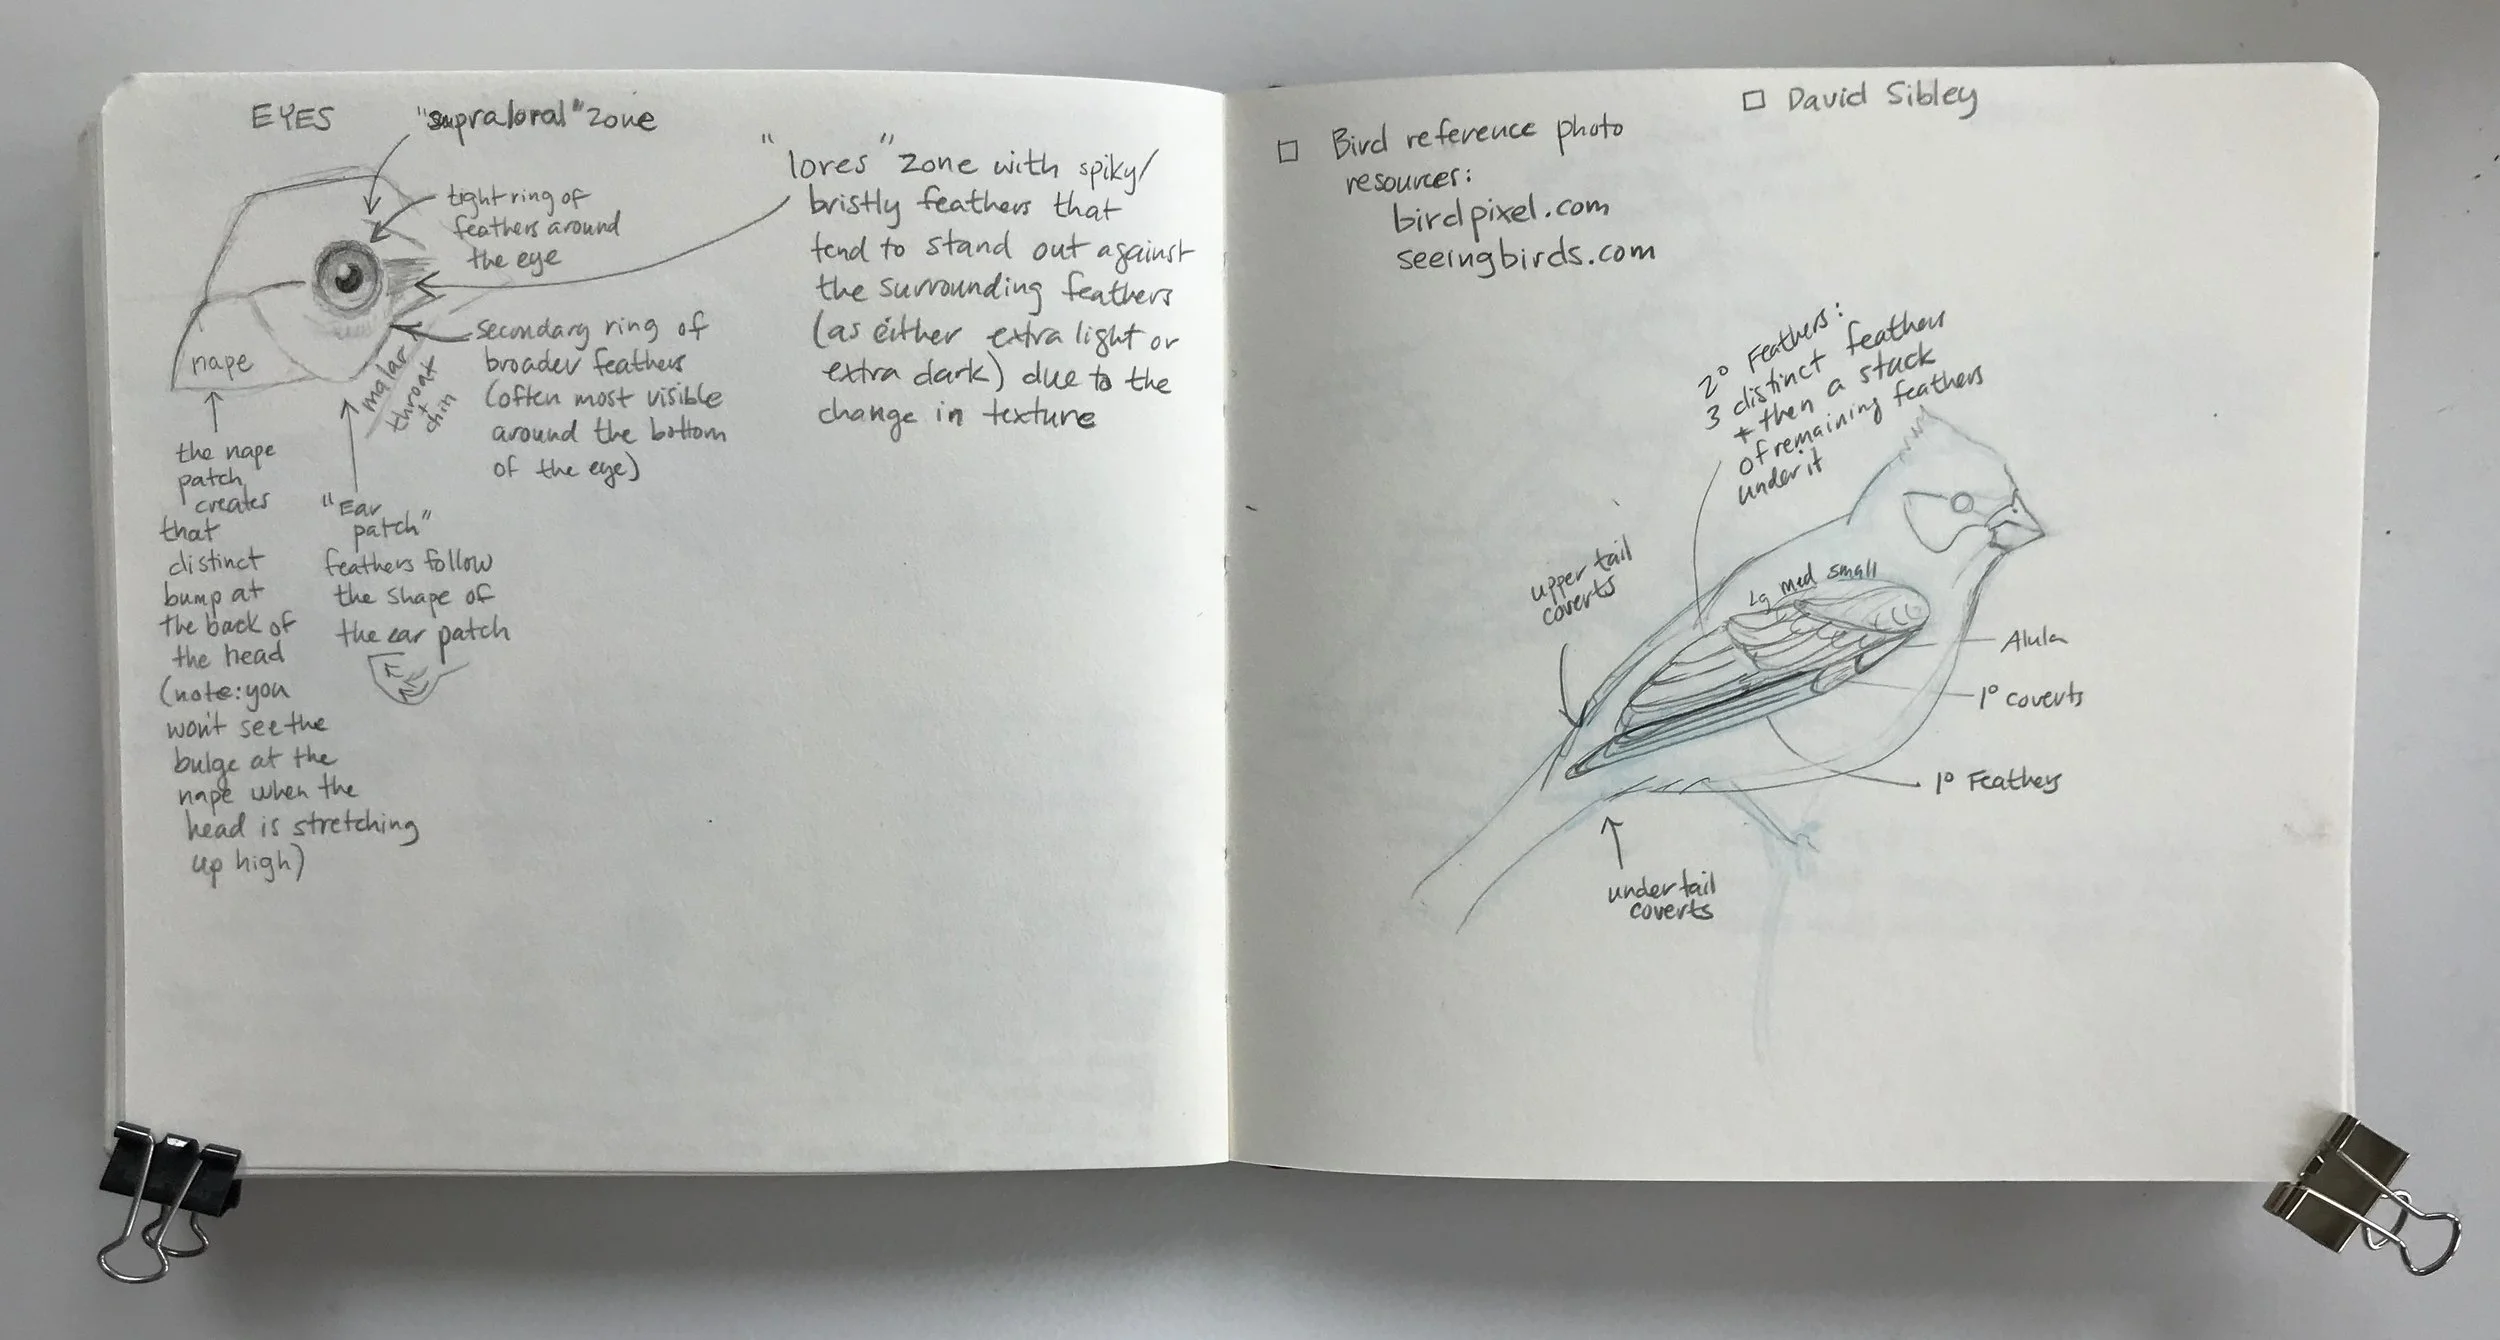 EYES
"supraloral" zone
tight ring of
feathers around
the eye
"lores" zone with spiky/
bristly feathers that
tend to stand out against
the surrounding feathers
(as either extra light or
extra dark) due to the
change in texture
secondary ring of
broader feathers
(often most visible
around the bottom
of the eye)
nape
malar
throat
+
chin
the nape
patch
creates
that
distinct
bump at
the back of
the head
(note: you
won't see the
bulge at the
nape when the
head is stretching
up high)
"Ear
patch"
feathers follow
the shape of
the ear patch
□ Bird reference photo
resources:
birdpixel.com
seeingbirds.com
□ David Sibley
2° Feathers:
3 distinct feathers
+ then a stack
of remaining feathers
under it
upper tail
coverts
Lg med small
Alula
1° coverts
1° Feathers
under tail
coverts